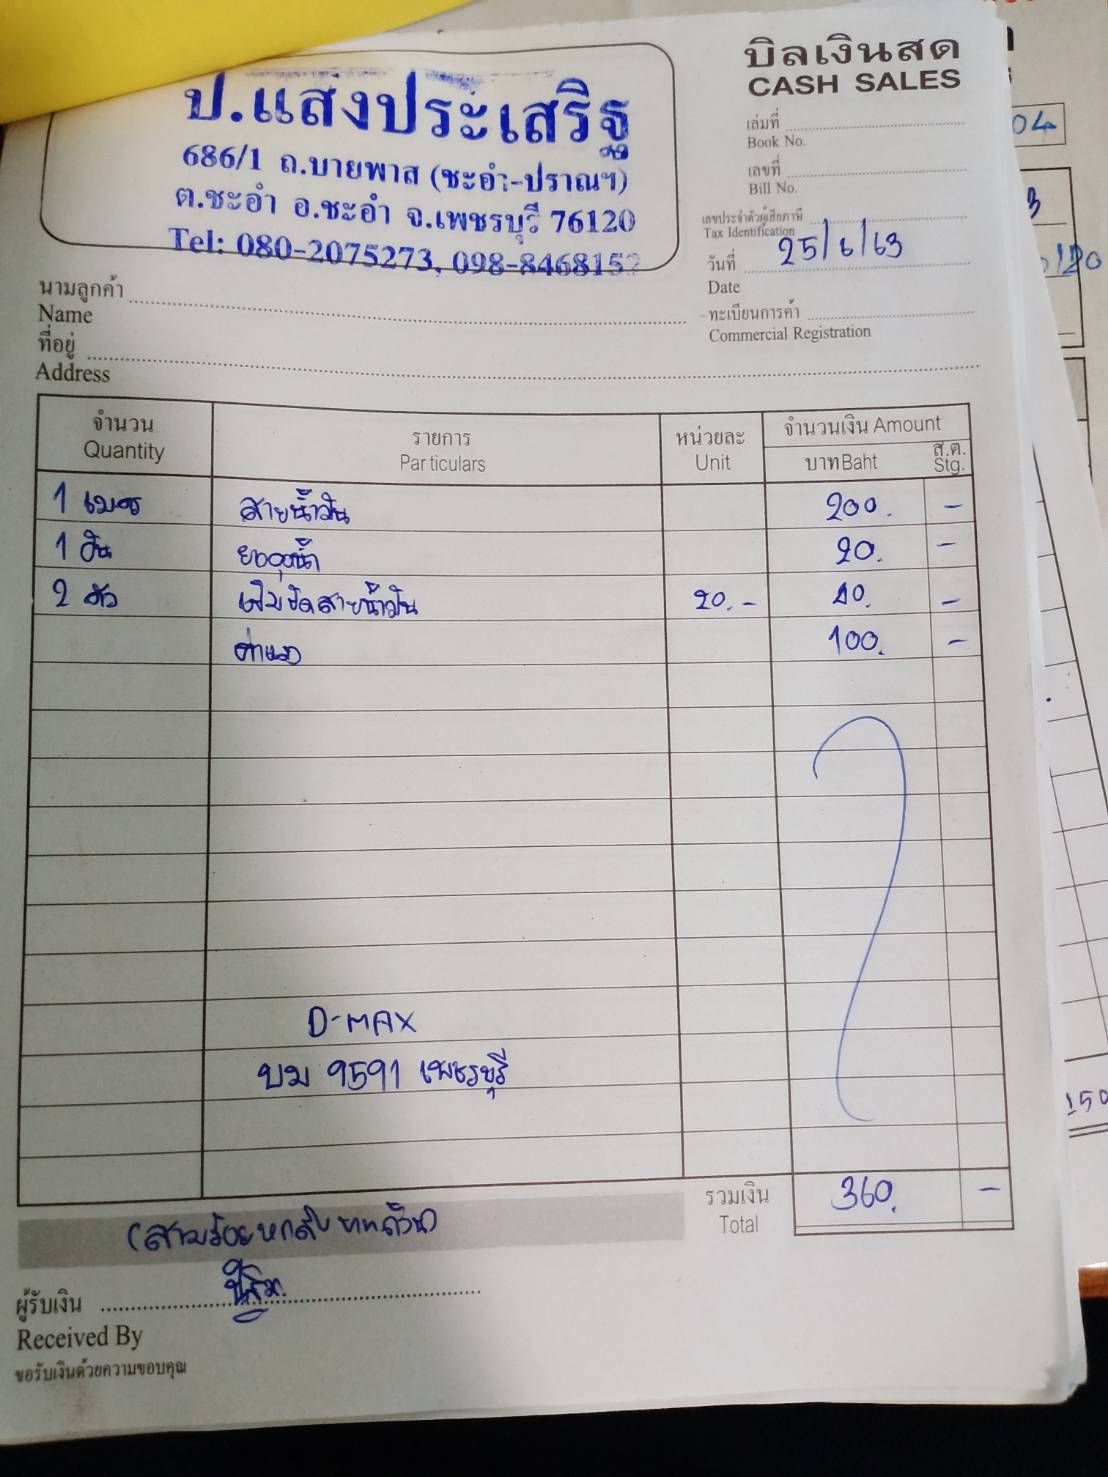 บิลเงินสด
CASH SALES
ป.แสงประเสริฐ
686/1 ถ.บายพาส (ชะอำ-ปราณฯ)
ต.ชะอำ อ.ชะอำ จ.เพชรบุรี 76120
Tel: 080-2075273, 098-8468152
เล่มที่
Book No.
เลขที่
Bill No.
เลขประจำตัวผู้เสียภาษี
Tax Identification
วันที่ 25/6/63
Date
ทะเบียนการค้า
Commercial Registration
นามลูกค้า
Name
ที่อยู่
Address
จำนวน รายการ หน่วยละ จำนวนเงิน Amount
Quantity Particulars Unit บาท Baht ส.ต. Stg.
1 เมตร สายน้ำมัน 200. -
1 อัน 20. -
2 ตัว เข็มขัดสายน้ำมัน 20.- 40. -
ค่าแรง 100. -
D-MAX
บม 9591 เพชรบุรี
รวมเงิน 360. -
Total
(สามร้อยหกสิบบาทถ้วน)
ผู้รับเงิน
Received By
ขอรับเงินด้วยความขอบคุณ
04
3
/20
150